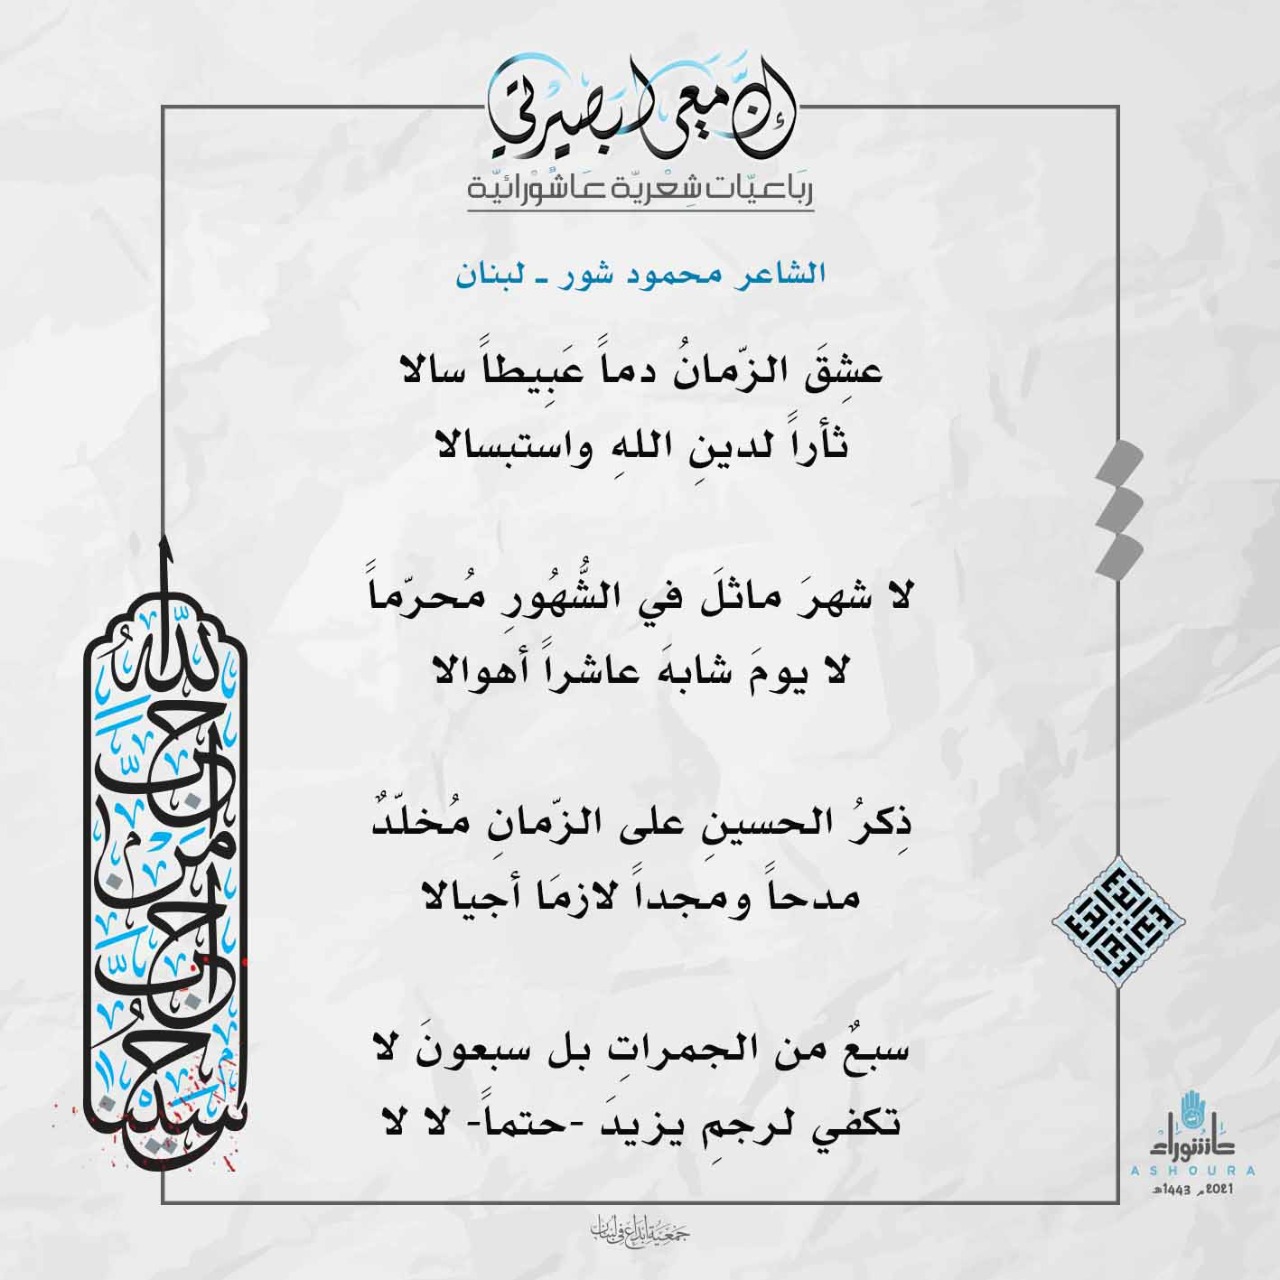 إنَّ معي لبصيرتي
رباعيّات شِعْريّة عَاشُوْرائيّة
الشاعر محمود شور ـ لبنان
عشِقَ الزّمانُ دماً عَبِيطاً سالا
ثأراً لدينِ اللهِ واستبسالا
لا شهرَ ماثلَ في الشُّهُورِ مُحرّماً
لا يومَ شابهَ عاشراً أهوالا
ذِكرُ الحسينِ على الزّمانِ مُخلّدٌ
مدحاً ومجداً لازمَا أجيالا
سبعٌ من الجمراتِ بل سبعونَ لا
تكفي لرجمِ يزيدَ -حتماً- لا لا
أحبَّ الله من أحبَّ حسيناً
عاشوراء
ASHOURA
2021م 1443هـ
جمعية إبداع في لبنان